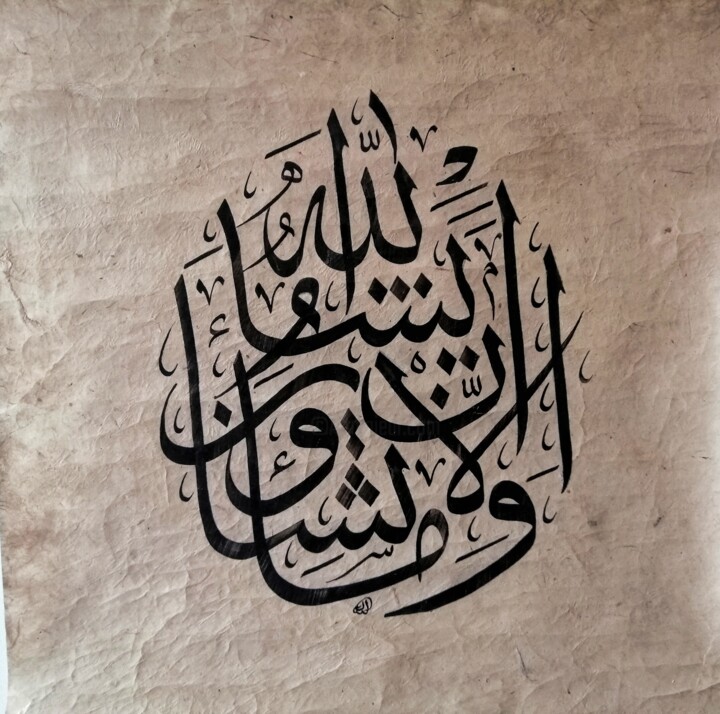 وما تشاؤن الا ان يشاء الله